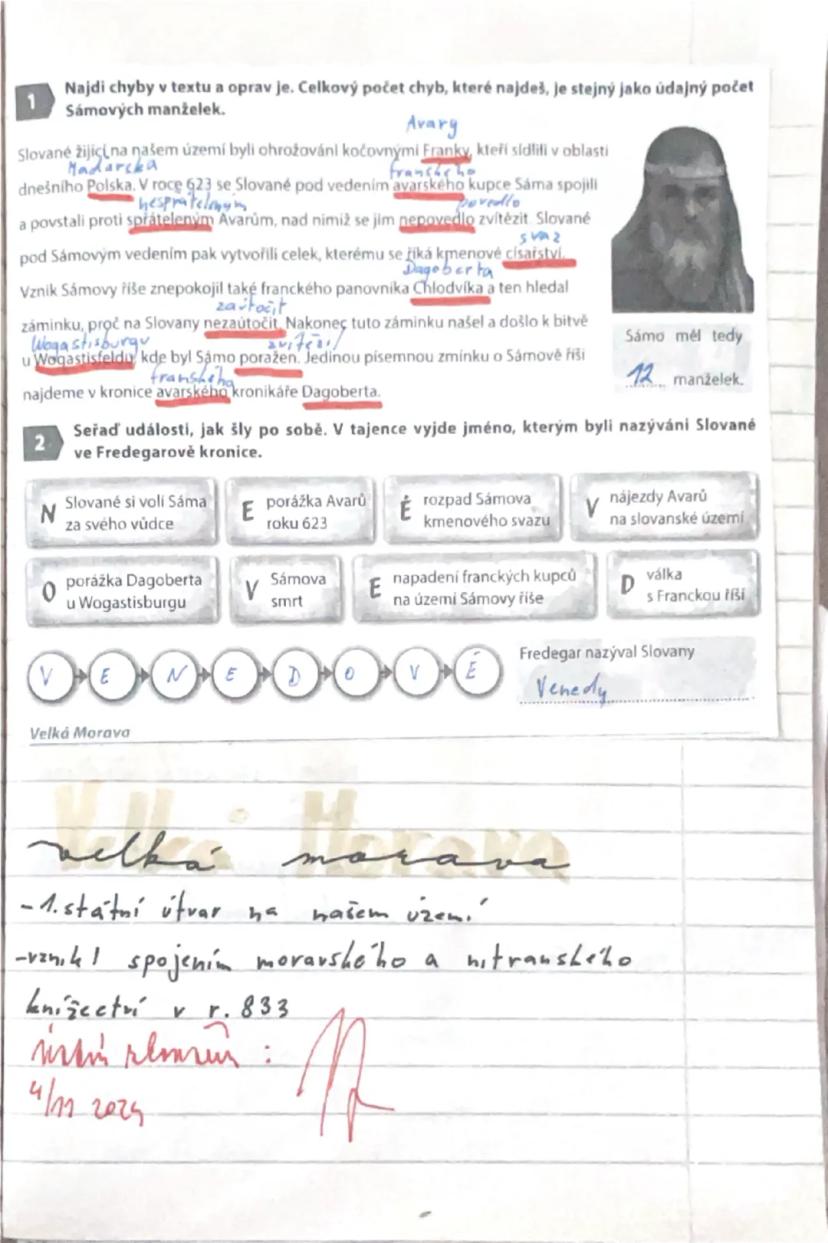 1 Najdi chyby v textu a oprav je. Celkový počet chyb, které najdeš, je stejný jako údajný počet
Sámových manželek.
Avary
Slované žijící na našem území byli ohrožováni kočovnými Franky, kteří sídlili v oblasti
Maďarska franského
dnešního Polska. V roce 623 se Slované pod vedením avarského kupce Sáma spojili
nespřáteleným povedlo
a povstali proti spřáteleným Avarům, nad nimiž se jim nepovedlo zvítězit. Slované
svaz
pod Sámovým vedením pak vytvořili celek, kterému se říká kmenové císařství.
Dagoberta
Vznik Sámovy říše znepokojil také franckého panovníka Chlodvíka a ten hledal
zaútočit
záminku, proč na Slovany nezaútočit. Nakonec tuto záminku našel a došlo k bitvě
Wogastisburgu zvítězil
u Wogastisfeldu, kde byl Sámo poražen. Jedinou písemnou zmínku o Sámově říši
franského
najdeme v kronice avarského kronikáře Dagoberta.
Sámo měl tedy
12 manželek.
2 Seřaď události, jak šly po sobě. V tajence vyjde jméno, kterým byli nazýváni Slované
ve Fredegarově kronice.
N Slované si volí Sáma
za svého vůdce
E porážka Avarů
roku 623
É rozpad Sámova
kmenového svazu
V nájezdy Avarů
na slovanské území
O porážka Dagoberta
u Wogastisburgu
V Sámova
smrt
E napadení franckých kupců
na území Sámovy říše
D válka
s Franckou říší
V E N E D O V É
Fredegar nazýval Slovany
Venedy
Velká Morava
Velká Morava
velká morava
-1. státní útvar na našem území
-vznikl spojením moravského a nitranského
knížectví v r. 833
4/11 2024